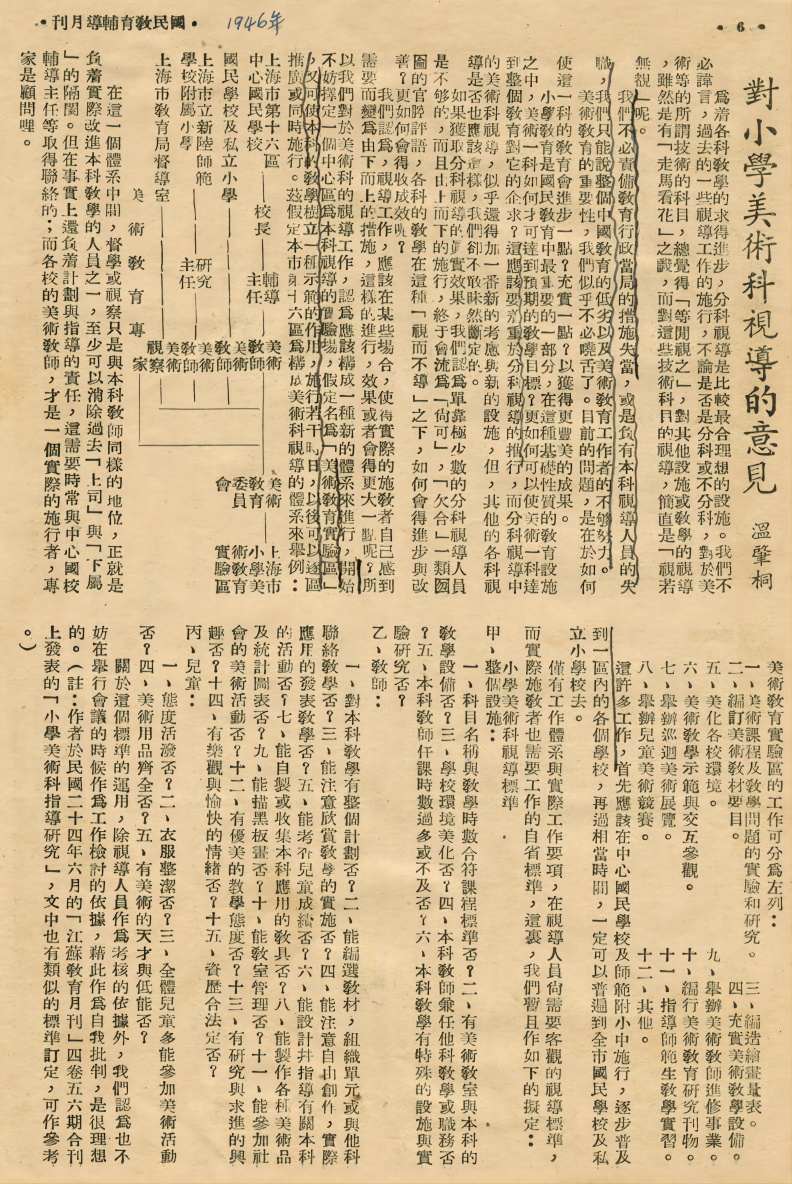 ·國民教育輔導月刊·
1946年
·6·
對小學美術科視導的意見
溫肇桐
為着各科教學的求得進步,分科視導是比較最合理想的設施。我們不
必諱言,過去的一些視導工作的施行,不論是否是分科或不分科,對於美
術等的所謂技術的科目,總覺得「等閒視之」,對其他設施或教學的視導
,雖然是有「走馬看花」之譏,而對這些技術科目的視導,簡直是「視若
無覩」呢。
我們不必責備教育行政當局的措施失當,或是負有本科視導人員的失
職,我們只能說整個中國教育的低劣以及美術教育工作者的不够努力。
美術教育的重要性,我們似乎不必曉舌了。目前的問題,是在於如何
使這一科的教育會進步一點?充實一點?以獲得更豐美的成果。
小學教育是國民教育中最重要的一部分,在這種基礎性質的教育設施
之中,美術一科如何才可達到預期的教學目標?更如何可以使美術一科達
到整個教育對它的企求?這應該要着重於分科視導的推行,而分科視導中
的美術科視導,似乎還得加一番新的考慮與新的設施,但,其他的各科視
導是否也應該這樣,我們卻不敢昧然斷定的。
如果獲取分科視導的眞實效果,我們認為單靠極少數的分科視導人員
是不够的,而且由上而下的施行,終于會流為「尙可」,「欠合」一類囫
圇的官腔評語,各科的教學在這種「視而不導」之下,如何會得進步與改
善?更如何會得收成效呢?
我們認為,視導工作,應該在某些場合,使得實際的施教者自己感到
需要而變為由下而上的措施,這樣的進行,效果或者會得更大一點呢?所
以我們對於美術科的視導工作,認為應該構成一種新的體系來進行,開始
不妨擇定一個中心區為本科視導的實驗場,假定名為「美術教育實驗區」
,又可使本科的教學樹立一種示範的作用,施行若干時日,以後可以逐區
推廣或同時施行。茲假定本市第十六區為構成美術科視導的體系來舉例:
上海市第十六區中心國民學校——校長——輔導主任——美術教師
國民學校及私立小學——美術教師
上海市立新陸師範學校附屬小學——研究主任——美術教師
上海市教育局督導室——美術視察
美術教育專家
美術教育委員會
上海市小學美術教育實驗區
在這一個體系中間,督學或視察只是與本科教師同樣的地位,正就是
負着實際改進本科教學的人員之一,至少可以消除過去「上司」與「下屬
」的隔閡。但在事實上還負着計劃與指導的責任,這需要時常與中心國校
輔導主任等取得聯絡的;而各校的美術教師,才是一個實際的施行者,專
家是顧問哩。
美術教育實驗區的工作可分為左列:
一、美術課程及教學問題的實驗和研究。 三、編造繪畫量表。
二、編訂美術教材要目。 四、充實美術教學設備。
五、美化各校環境。 九、舉辦美術教師進修事業。
六、美術教學示範與交互參觀。 十、編行美術教育研究刊物。
七、舉辦巡迴美術展覽。 十一、指導師範生教學實習。
八、舉辦兒童美術競賽。 十二、其他。
這許多工作,首先應該在中心國民學校及師範附小中施行,逐步普及
到一區內的各個學校,再過相當時間,一定可以普遍到全市國民學校及私
立小學校去。
僅有工作體系與實際工作要項,在視導人員尙需要客觀的視導標準,
而實際施教者也需要工作的自省標準,這裏,我們暫且作如下的擬定:
小學美術科視導標準
甲、整個設施:
一、科目名稱與教學時數合符課程標準否?二、有美術教室與本科的
教學設備否?三、學校環境美化否?四、本科教師兼任他科教學或職務否
?五、本科教師任課時數過多或不及否?六、本科教學有特殊的設施與實
驗研究否?
乙、教師:
一、對本科教學有整個計劃否?二、能編選教材,組織單元或與他科
聯絡教學否?三、能注意欣賞教學的實施否?四、能注意自由創作,實際
應用的發表教學否?五、能考查兒童成績否?六、能設計幷指導有關本科
的活動否?七、能自製或收集本科應用的教具否?八、能製作各種美術品
及統計圖表否?九、能描黑板畫否?十、能教室管理否?十一、能參加社
會的美術活動否?十二、有優美的教學態度否?十三、有研究與求進的興
趣否?十四、有樂觀與愉快的情緒否?十五、資歷合法定否?
丙、兒童:
一、態度活潑否?二、衣服整潔否?三、全體兒童多能參加美術活動
否?四、美術用品齊全否?五、有美術的天才與低能否?
關於這個標準的運用,除視導人員作為考核的依據外,我們認為也不
妨在舉行會議的時候作為工作檢討的依據,藉此作為自我批判,是很理想
的。(註:作者於民國二十四年六月的「江蘇教育月刊」四卷五六期合刊
上發表的「小學美術科指導研究」,文中也有類似的標準訂定,可作參考
。)